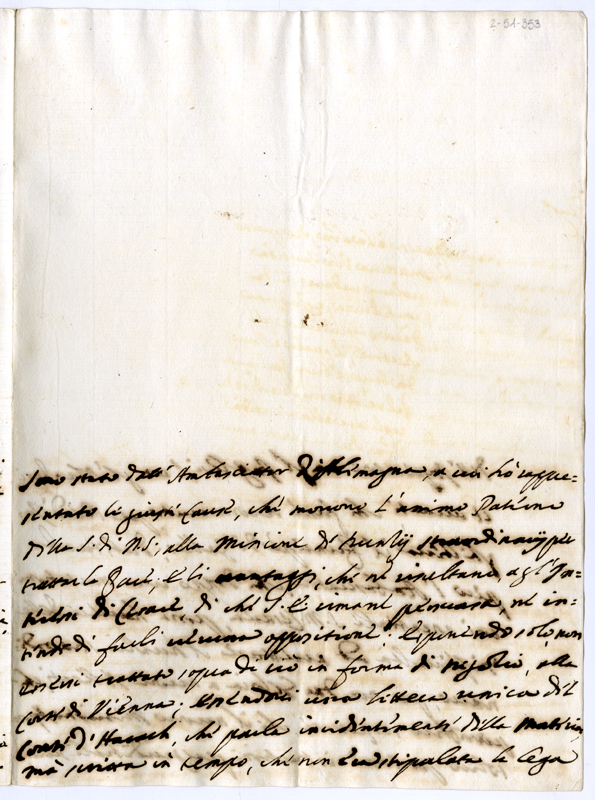 2-51-353
Sono stato dall' Ambasciator d'Allemagna, a cui hò rappre-
sentato le giuste Cause, che movono l'animo Paterno
della S. di N.S. alla missione di Nunzij straordinarij per
trattar la Pace, e li vantaggi, che ne risultano agl' In-
teressi di Cesare, di che S.E. rimane persuasa, ne in-
tende di farli veruna opposizione; esponendo solo non
essersi trattato sopra di ciò in forma di negozio, alla
Corte di Vienna; essendoci una lettera venuta del
Conte d'Harach, che parla incidentemente della materia,
mà scritta in tempo, che non era stipulata la Lega